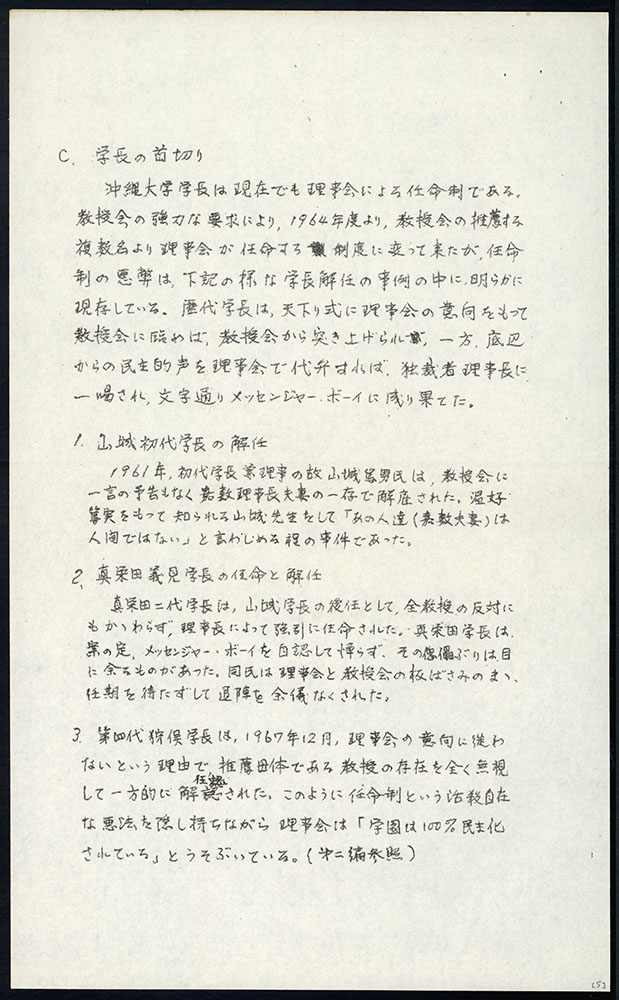 C. 学長の首切り
沖縄大学学長は現在でも理事会による任命制である。
教授会の強力な要求により、1964年度より、教授会の推薦する
複数名より理事会が任命する制度に変って来たが、任命
制の悪弊は、下記の様な学長解任の事例の中に、明らかに
現存している。歴代学長は、天下り式に理事会の意向をもって
教授会に臨めば、教授会から突き上げられ、一方、底辺
からの民主的声を理事会で代弁すれば、独裁者理事長に
一喝され、文字通りメッセンジャー・ボーイに成り果てた。
1. 山城初代学長の解任
1961年、初代学長兼理事の故山城篤男氏は、教授会に
一言の予告もなく嘉数理事長夫妻の一存で解任された。温好
篤実をもって知られる山城先生をして「あの人達(嘉数夫妻)は
人間ではない」と言わしめる程の事件であった。
2. 真栄田義見学長の任命と解任
真栄田二代学長は、山城学長の後任として、全教授の反対に
もかゝわらず、理事長によって強引に任命された。真栄田学長は、
案の定、メッセンジャー・ボーイを自認して憚らず、その傀儡ぶりは目
に余るものがあった。同氏は理事会と教授会の板ばさみのまゝ、
任期を待たずして退陣を余儀なくされた。
3. 第四代狩俣学長は、1967年12月、理事会の意向に従わ
ないという理由で推薦母体である教授の存在を全く無視
して一方的に解任された。このように任命制という活殺自在
な悪法を隠し持ちながら理事会は「学園は100%民主化
されている」とうそぶいている。(第二編参照)
(5)